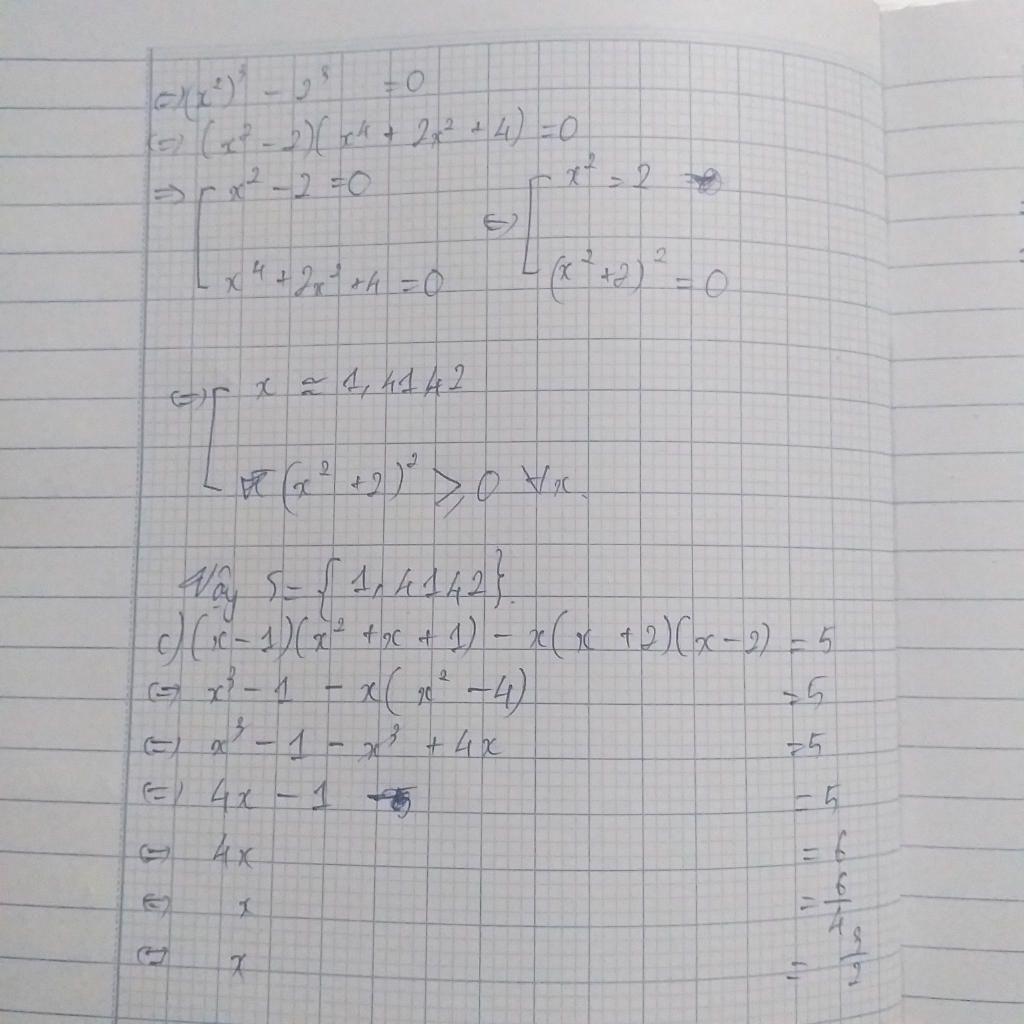 ⇔ (x²)³ - 2³ = 0
⇔ (x² - 2)(x⁴ + 2x² + 4) = 0
⇒ [ x² - 2 = 0 ⇔ [ x² = 2
x⁴ + 2x² + 4 = 0 (x² + 2)² = 0
⇔ [ x ≈ 1,4142
(x² + 2)² ⩾ 0 ∀x.
Vậy S = {1,4142}.
c) (x - 1)(x² + x + 1) - x(x + 2)(x - 2) = 5
⇔ x³ - 1 - x(x² - 4) = 5
⇔ x³ - 1 - x³ + 4x = 5
⇔ 4x - 1 = 5
⇔ 4x = 6
⇔ x = 6/4
⇔ x = 3/2